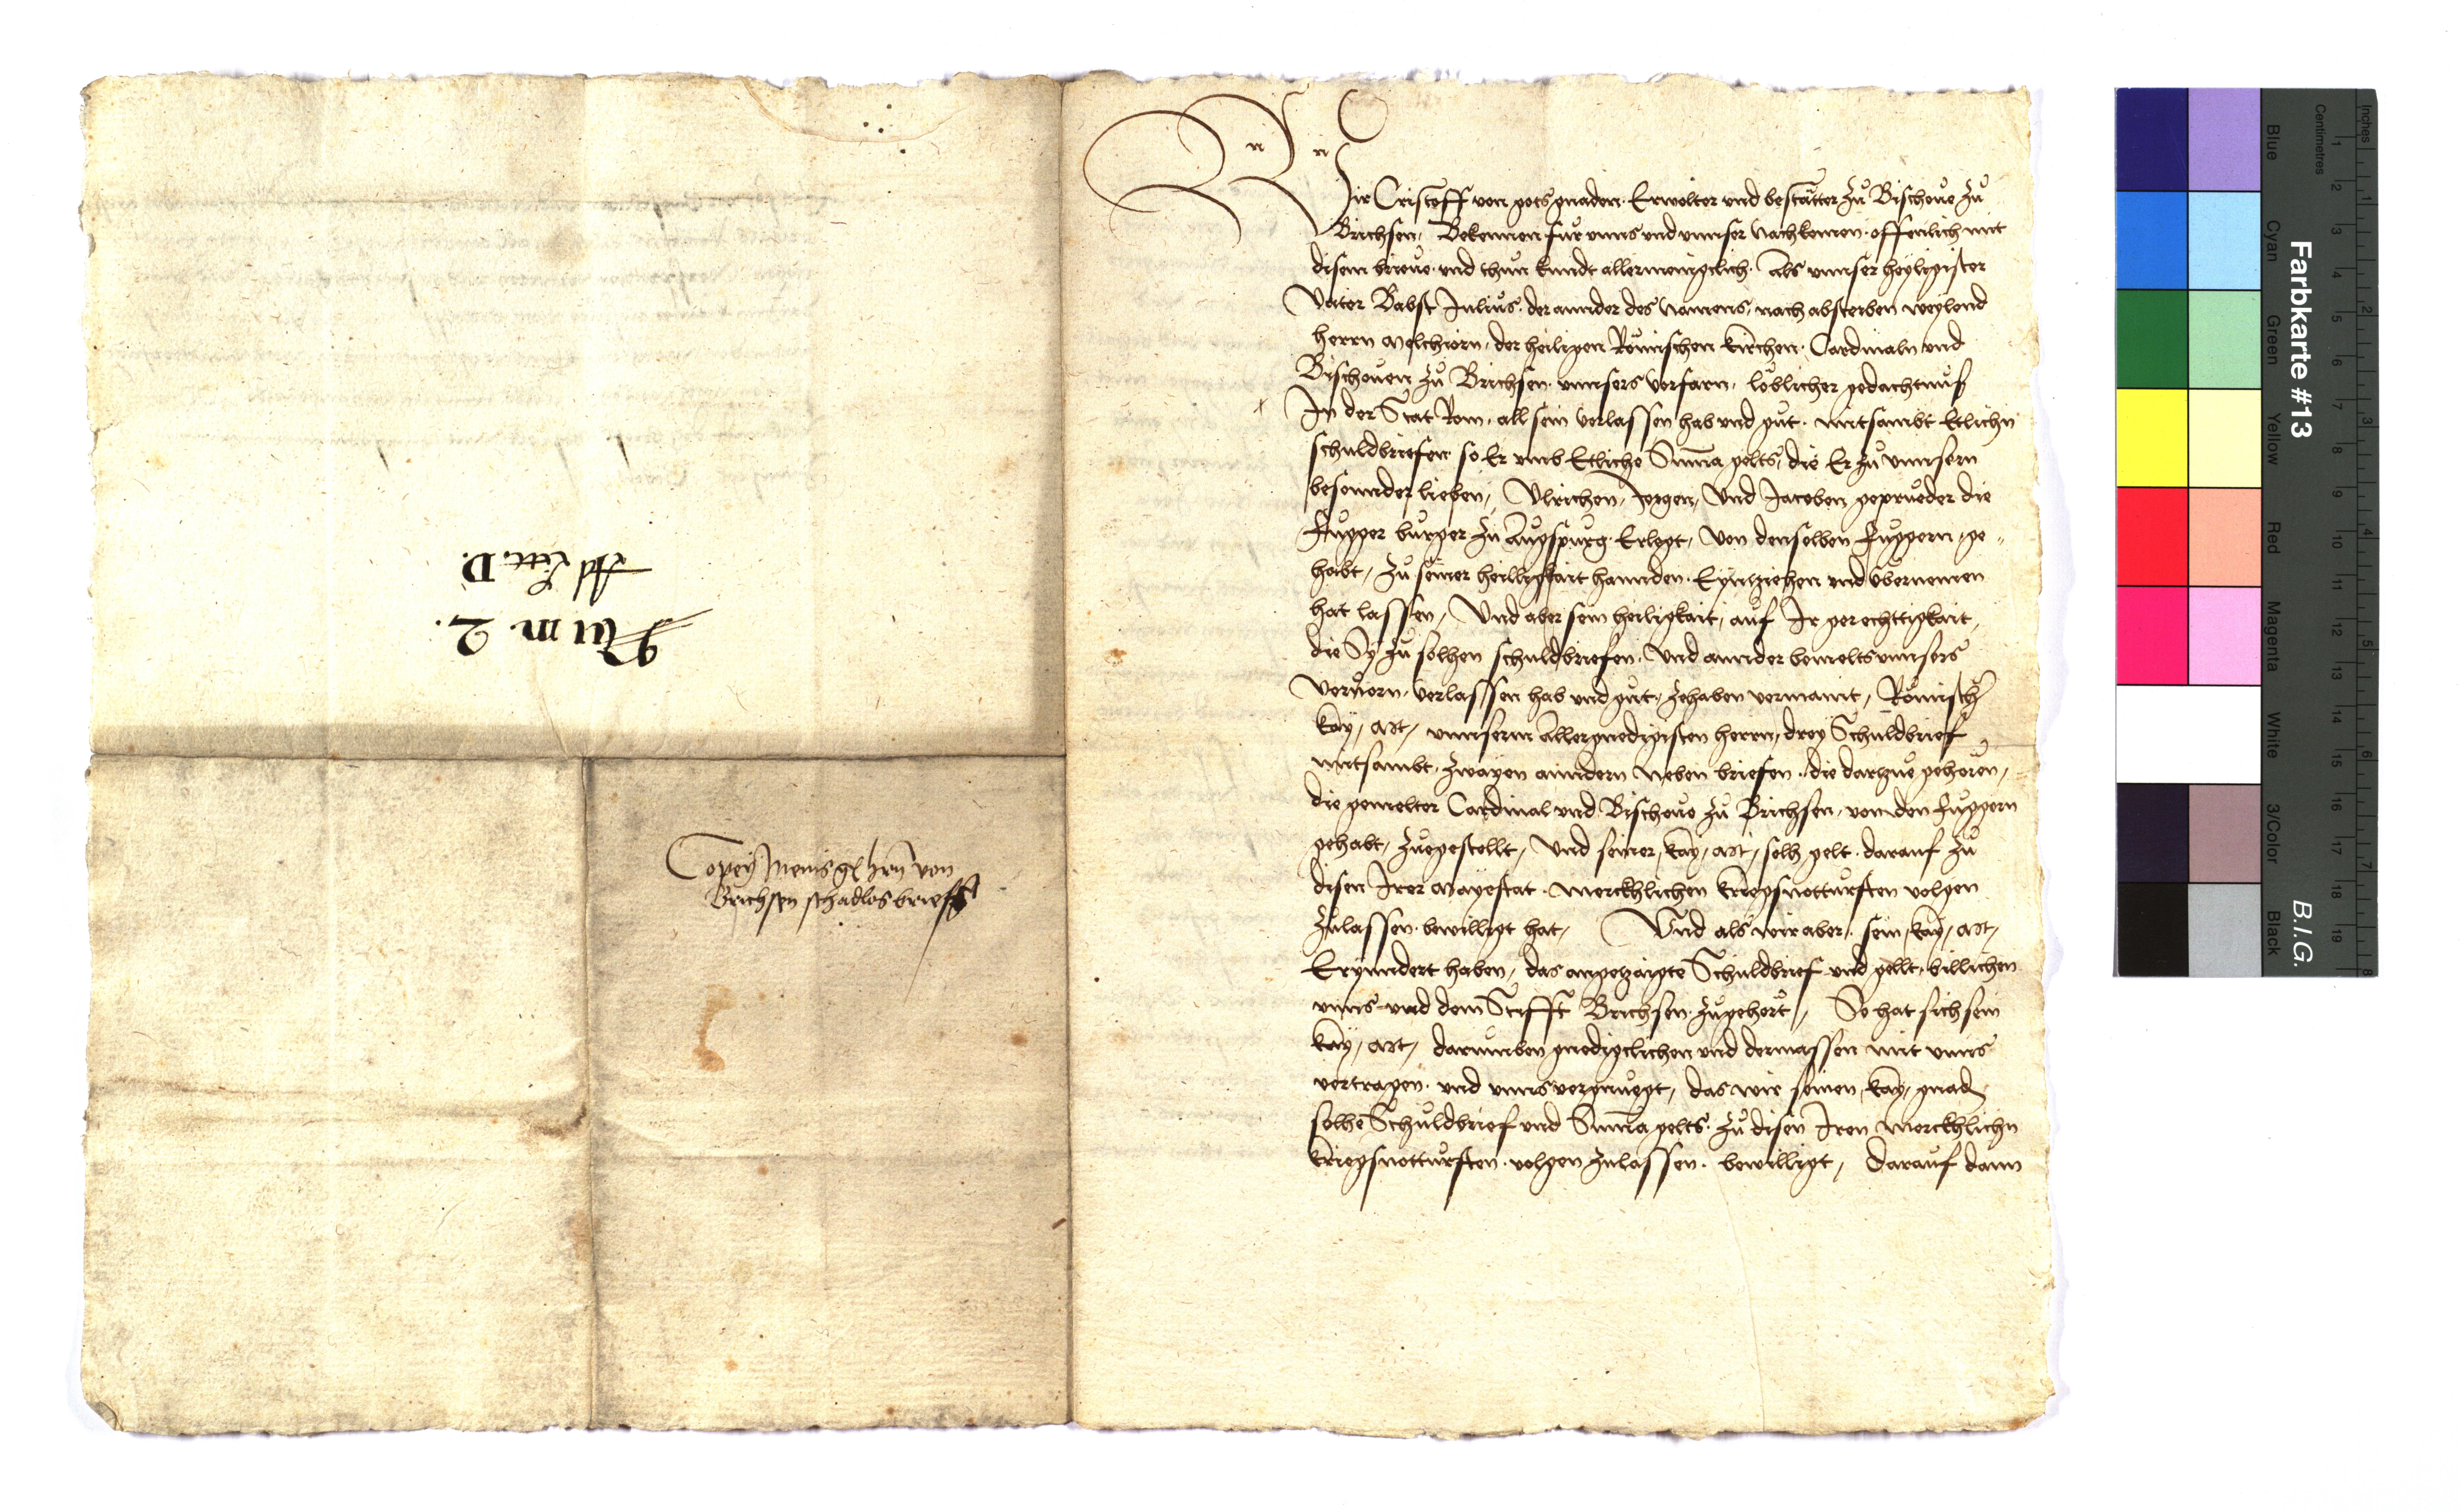 Num 2.
Ad Litt. D.
Copey Meins g hrn von
Brichsen schadlosbrieff
Wir Cristoff von gots gnaden Erwelter und bestätter zu Bischove zu
Brichsen, Bekennen für unns und unnser Nachkomen offenlich mit
disem brieve und thun kundt allermenigclich. Als unnser heyligister
Vater Babst Julius der annder des Namens, nach absterben weylend
herrn Melchiorn, der heiligen Römischen kirchen Cardinaln und
Bischoven zu Brichsen unnsers Vorfarn, löblicher gedachtnuß
In der Stat Rom, all sein verlassen hab und gut mitsambt Etlichn
schuldbriefen so Er umb Etliche Suma gelts, die Er zu unnsern
besonnder lieben, Ulrichen, Jorgen, Und Jacoben geprueder die
Fugger burger zu Augspurg Erlegt, Von denselben Fuggern, ge-
habt, zu seiner heilligkait hannden Eynziehen und übernemen
hat lassen, Und aber sein heiligkait, auf Ir gerechttigkait,
die Sy zu solhen schuldbriefen, Und annder bemelts unnsers
Vorvorn, verlassen hab und gut, zehaben vermaint, Römischr
kay, Mt, unnserm Allergnedigisten herrn, drey Schuldbrief
mitsambt zwayen anndern Neben briefen, die darzue gehoren,
die gemelter Cardinal und Bischove zu Brichsen, von den Fuggern
gehabt, zuegestellt, Und seiner, kay, Mt, solh gelt darauf zu
disen Irer Mayestat merckhlichen kriegsnotturften volgen
zulassen bewilligt hat, Und als wir aber, sein, kay, Mt,
Erynndert haben, das angezaigte Schuldbrief und gellt, billichen
unns und dem Stifft Brichsen zugehört, So hat sich sein
kay, Mt, darumben gnedigclichen und dermassen mit unns
vertragen und unns vergnuegt, das wir seinen, kay, gnad
solhe Schuldbrief und Suma gelts zu disen Iren merckhlichn
kriegsnotturften volgen zulassen bewilligt, Darauf dann
Farbkarte #13
B.I.G.
Inches
Centimetres
Blue
Cyan
Green
Yellow
Red
Magenta
White
3/Color
Black
1 2 3 4 5 6 7 8 9 10 11 12 13 14 15 16 17 18 19
1 2 3 4 5 6 7 8